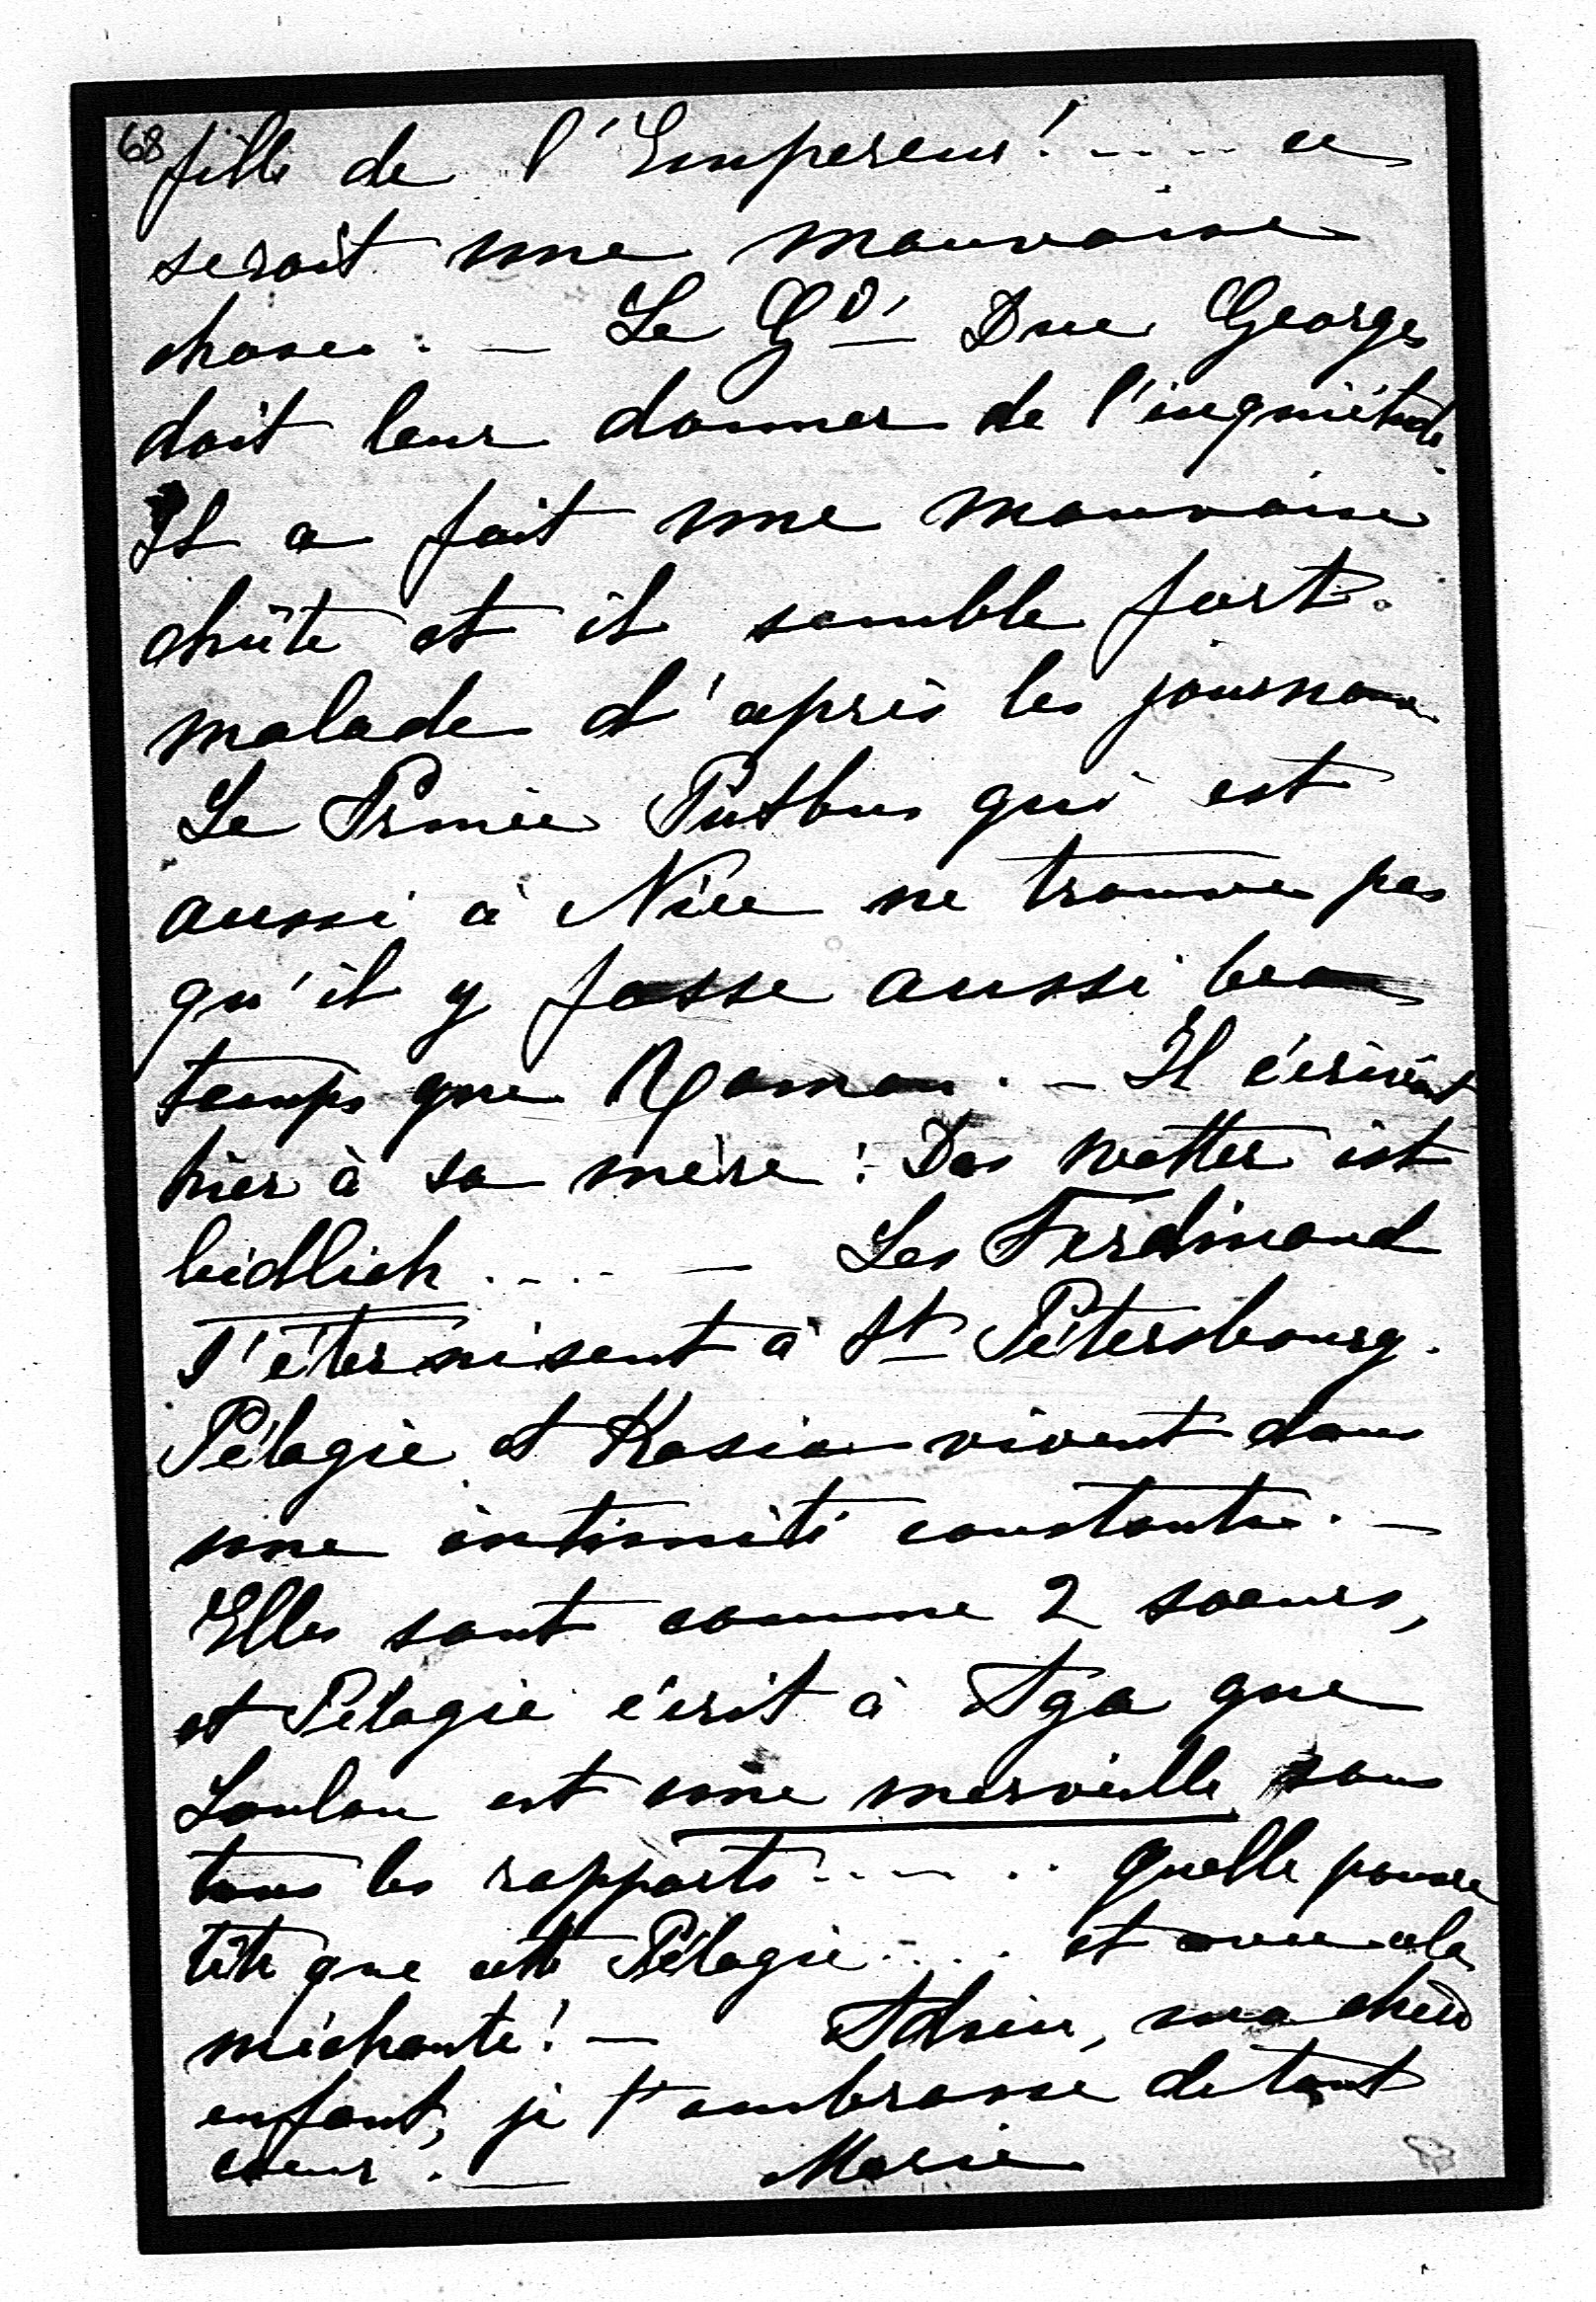 68 fille de l'Empereur! .... ce
serait une mauvaise
chose. — Le Gd Duc Georges
doit leur donner de l'inquiétude.
Il a fait une mauvaise
chûte et il semble fort
malade d'après les journaux
Le Prince Putbus qui est
aussi à Nice ne trouve pas
qu'il y fasse aussi beau
temps que Maman. — Il écrivait
hier à sa mère: Das Wetter ist
leidlich .... — Les Ferdinand
s'éternisent à St Pétersbourg.
Pélagie et Kasia vivent dans
une intimité constante. —
Elles sont comme 2 soeurs,
et Pélagie écrit à Aga que
Loulou est une merveille sous
tous les rapports ..... quelle pauvre
tête que cette Pélagie .... et avec cela
méchante! — Adieu, ma chère
enfant, je t'embrasse de tout
coeur. — Marie